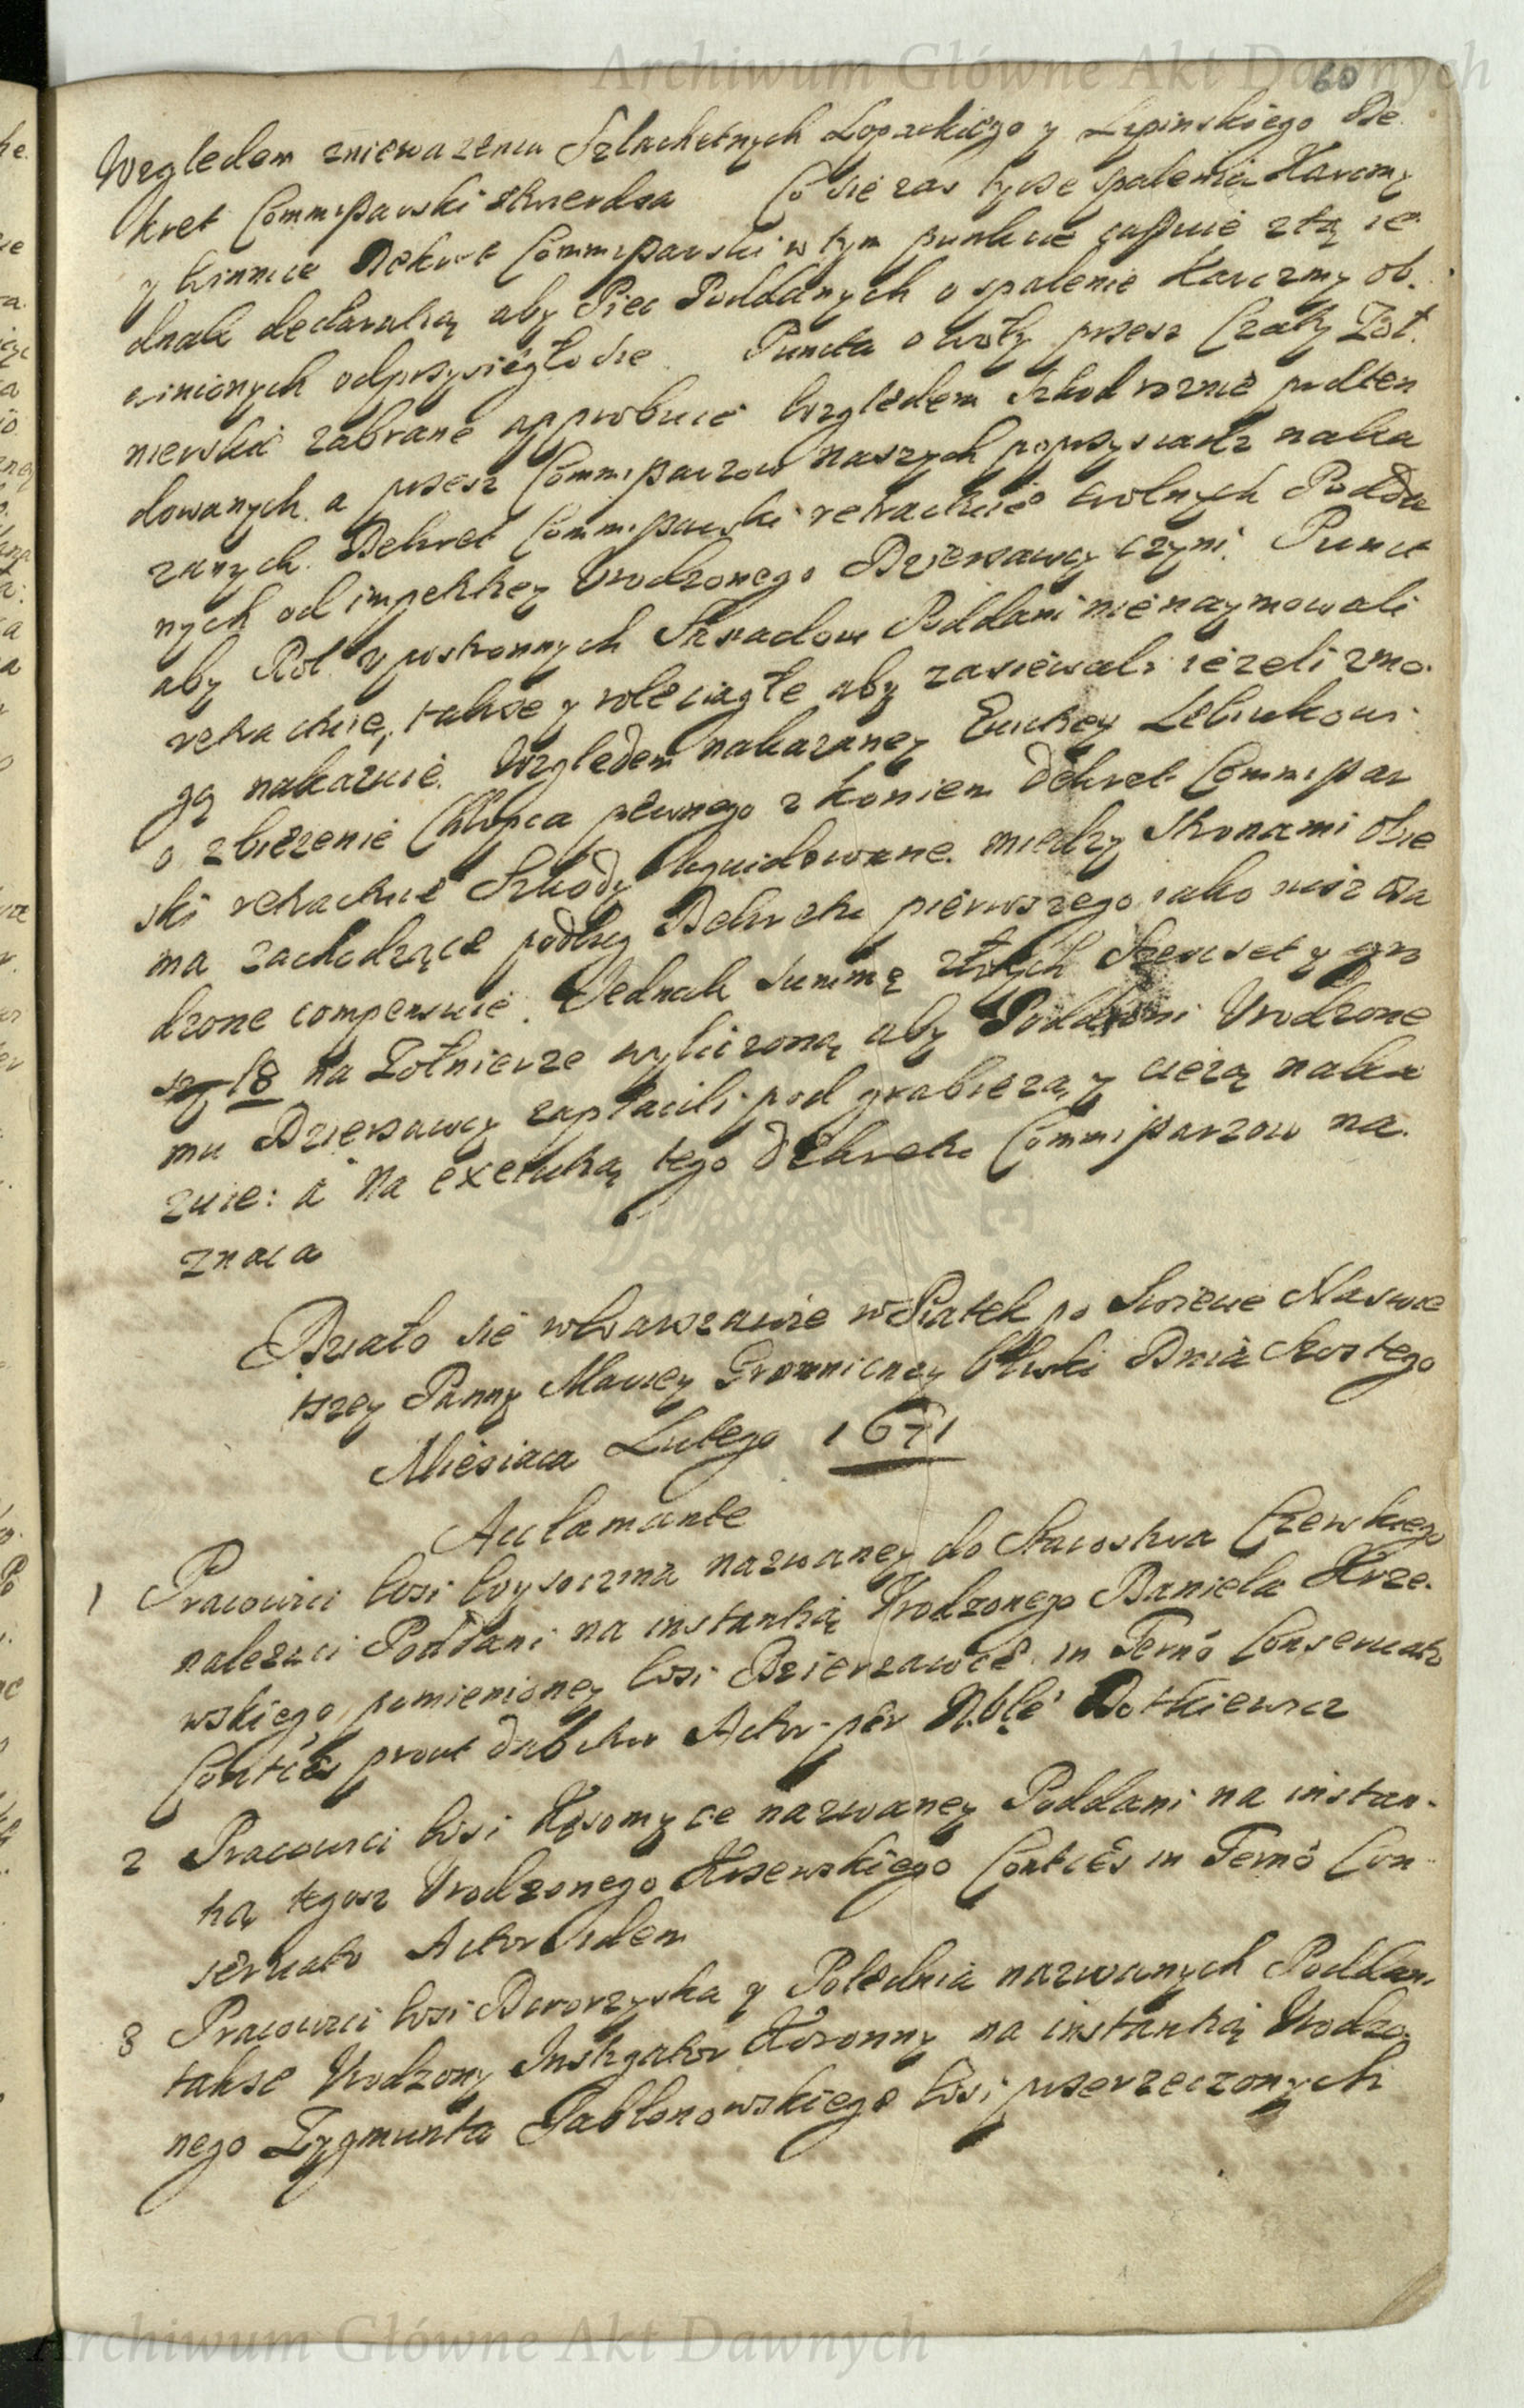 Archiwum Główne Akt Dawnych
60
Względem zniewazenia Szlachetnych Łopackiego y Lipinskiego De
kret Commissarski stwierdza Co sie zas tycze spalenia Karczmy
y winnice Dekret Commissarski w tym punkcie cassuie z tą ie
dnak declaratią aby Piec Poddanych o spalenie Karczmy ob
winionych odprzysięgło sie. Puncta o woły przesz Czaty Zoł
nierskie zabrane approbuie względem szkod roznie preten
dowanych a przesz Commissarzow naszych poprzysiadz naka
zanych. Dekret Commissarski retractuie wolnych Podda
nych od impetitiey Urodzonego Dzierzawcy czyni. Punct
aby Rol y postronnych Sąsiadow Poddani nie naymowali
retractuie, takze y role ciągłe aby zasiewali iezeli zmo
gą nakazuie. Względem nakazaney Ewictiey Lebiukowi
o zbiezenie Chłopca pewnego z koniem dekret Commissar
ski retractuie Szkody liquidowane między stronami obie
ma zachodzące podług Dekretu pierwszego iako iusz osą
dzone compensuie. Jednak summę złotych Szescset y gro
szy 18 na Zołnierze wyliczoną aby Poddani Urodzone
mu Dzierzawcy zapłacili pod grabieżą y cieżą naka
zuie: a na exekutią tego dekretu Commissarzow na
znacza
Działo sie w Warszawie w Piatek po Swiecie Naswie
tszey Panny Mariey Gromniczney bliski Dnia szostego
Miesiaca Lutego 1671
Acclamante
1 Pracowici wsi Wysoczma nazwaney do Starostwa Czewskiego
nalezaci Poddani na instantią Urodzonego Daniela Krze
wskiego pomienioney wsi Dzierzawce in Termo Conservato
Conties prout dnb citur Actor per Nble Dotkiewicz
2 Pracowici wsi Kosomyce nazwaney Poddani na instan
tią tegosz Urodzonego Krzewskiego Conties in Termo Con
servato Actor Idem
3 Pracowici wsi Dworzyska y Polednia nazwanych Poddan.
takze Urodzony Instigator Koronny na instantią Urodzo
nego Zygmunta Jabłonowskiego wsi przerzeczonych
Archiwum Główne Akt Dawnych